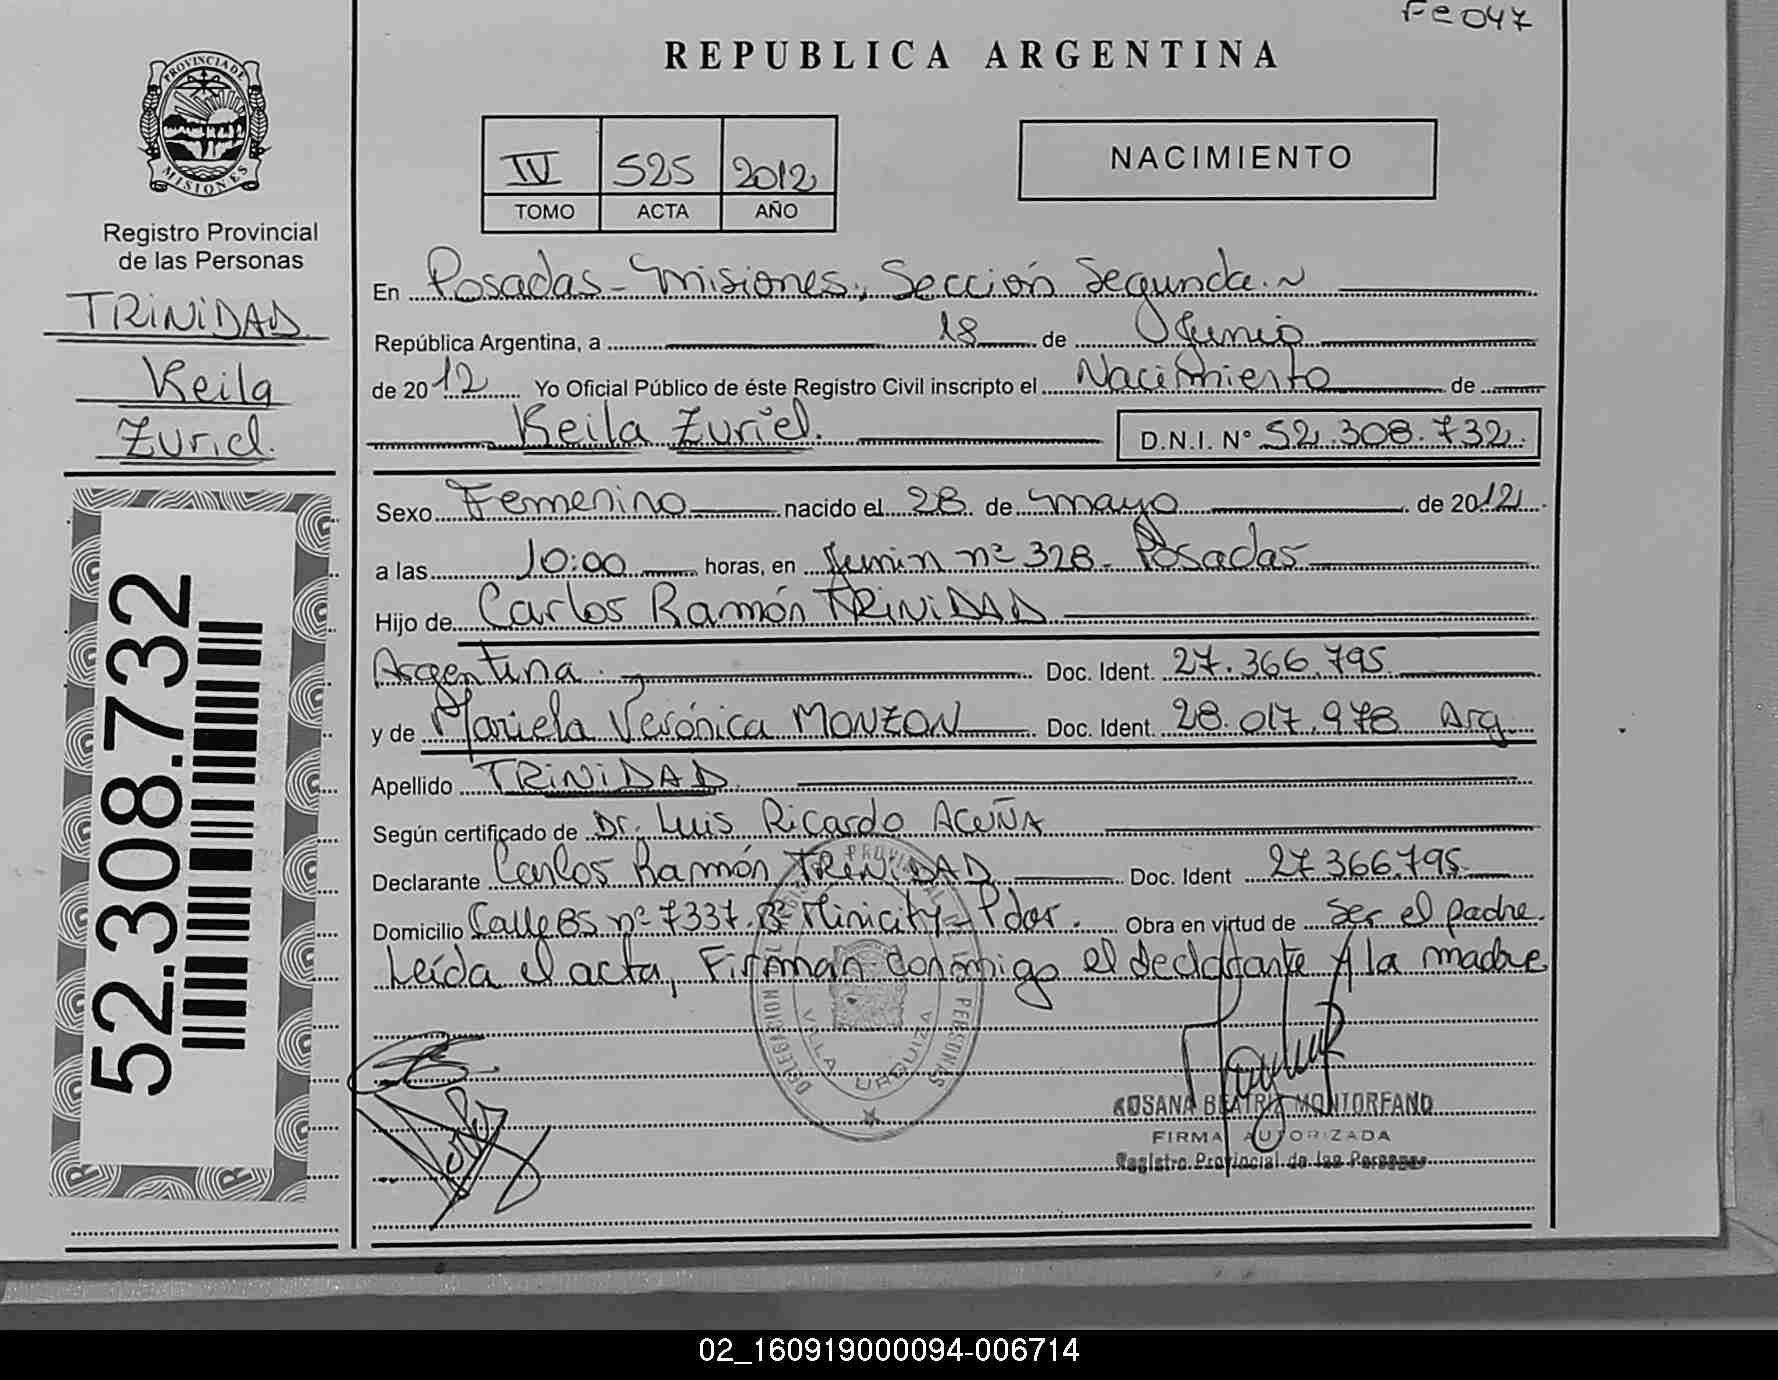 Fe 047
REPUBLICA ARGENTINA
PROVINCIA DE
MISIONES
Registro Provincial
de las Personas
IV 525 2012
TOMO ACTA AÑO
NACIMIENTO
TRINIDAD
Keila
Zuriel.
En Posadas - Misiones, Sección Segunda.~
República Argentina, a 18 de Junio
de 2012 Yo Oficial Público de éste Registro Civil inscripto el Nacimiento de
Keila Zuriel. D.N.I. N° 52.308.732.
Sexo Femenino nacido el 28 de mayo de 2012
a las 10:00 horas, en Junin nº 328 - Posadas
Hijo de Carlos Ramón TRINIDAD
Argentina. Doc. Ident. 27.366.795
y de Mariela Verónica MONZON Doc. Ident. 28.017.978 Arg
Apellido TRINIDAD
Según certificado de Dr. Luis Ricardo ACUÑA
Declarante Carlos Ramón TRINIDAD Doc. Ident 27.366.795
Domicilio Calle 85 nº 7337. Bº Minicity - Pdas. Obra en virtud de ser el padre.
Leída el acta, Firman conmigo el declarante y la madre
52.308.732
DELEGACION REGISTRO PROVINCIAL DE LAS PERSONAS
VILLA URQUIZA
ROSANA BEATRIZ MONTORFANO
FIRMA AUTORIZADA
Registro Provincial de las Personas
02_160919000094-006714